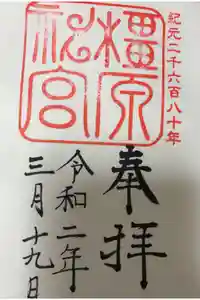 紀元二千六百八十年
橿原神宮
奉拝
令和二年
三月十九日